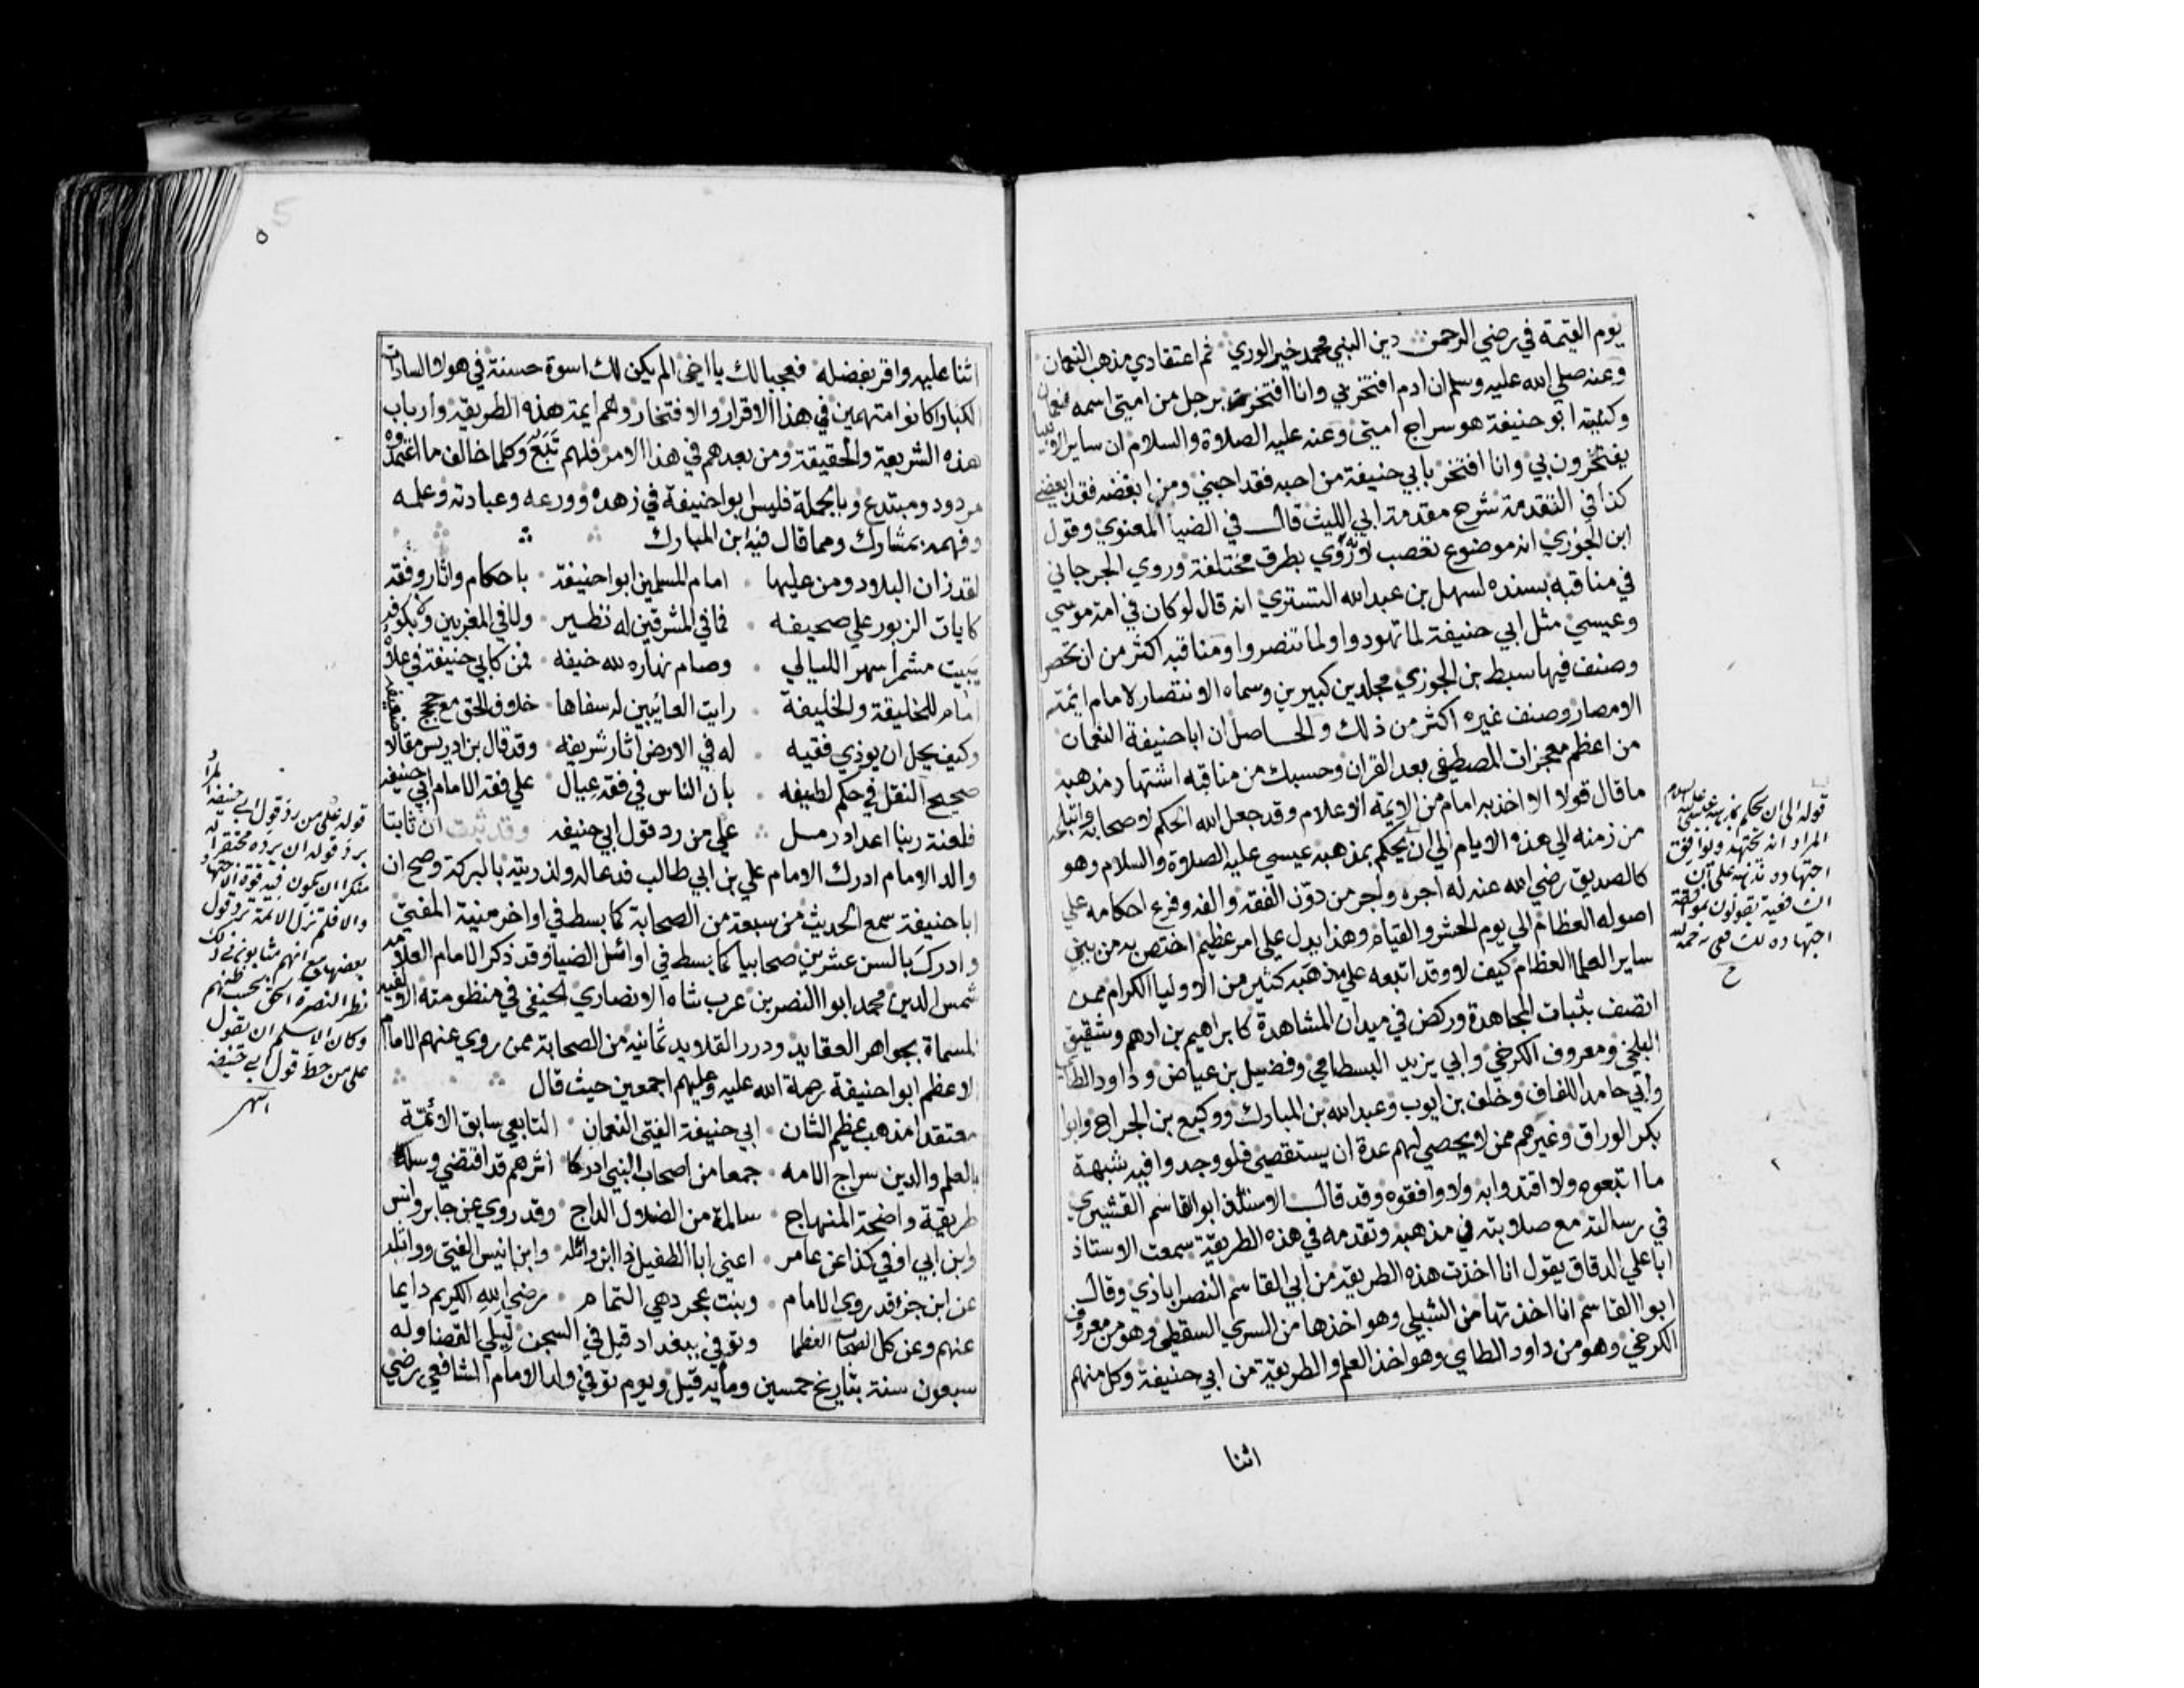 يوم القيمة في رضي الرحمن دين النبي محمد خير الوري ثم اعتقادي مذهب النعمان
وعنه صلي الله عليه وسلم ان ادم افتخر بي وانا افتخرت برجل من امتي اسمه نعمان
وكنيته ابو حنيفة هو سراج امتي وعنه عليه الصلاة والسلام ان ساير الانبيا
يفتخرون بي وانا افتخر بابي حنيفة من احبه فقد احبني ومن ابغضه فقد ابغضني
كذا في التقدمة شرح مقدمة ابي الليث قال في الضيا المعنوي وقول
ابن الجوزي انه موضوع تعصب لانه روي بطرق مختلفة وروي الجرجاني
في مناقبه بسنده لسهل بن عبد الله التستري انه قال لو كان في امة موسي
وعيسي مثل ابي حنيفة لما تهودوا ولما تنصروا ومناقبه اكثر من ان تحصر
وصنف فيها سبط بن الجوزي مجلدين كبيرين وسماه الانتصار لامام ائمة
الامصار وصنف غيره اكثر من ذلك والحاصل ان ابا حنيفة النعمان
من اعظم معجزات المصطفي بعد القران وحسبك من مناقبه اشتهار مذهبه
ما قال قولا الا اخذ به امام من الايمة الاعلام وقد جعل الله الحكم لاصحابه واتباعه
من زمنه الي هذه الايام الي ان يحكم بمذهبه عيسي عليه الصلاة والسلام وهو
كالصديق رضي الله عنه له اجره واجر من دون الفقه والفه وفرع احكامه علي
اصوله العظام الي يوم الحشر والقيام وهذا يدل علي امر عظيم اختص به من بين
ساير العلما العظام كيف لا وقد اتبعه علي مذهبه كثير من الاوليا الكرام ممن
اتصف بثبات المجاهدة وركض في ميدان المشاهدة كابراهيم بن ادهم وشقيق
البلخي ومعروف الكرخي وابي يزيد البسطامي وفضيل بن عياض وداود الطايي
وابي حامد اللفاف وخلف بن ايوب وعبد الله بن المبارك ووكيع بن الجراح وابو
بكر الوراق وغيرهم ممن لا يحصي لهم عدة ان يستقصي فلو وجدوا فيه شبهة
ما اتبعوه ولا اقتدوا به ولا وافقوه وقد قال الاستاذ ابو القاسم القشيري
في رسالته مع صلابته في مذهبه وتقدمه في هذه الطريقة سمعت الاستاذ
ابا علي الدقاق يقول انا اخذت هذه الطريقة من ابي القاسم النصراباذي وقال
ابو القاسم انا اخذتها من الشبلي وهو اخذها من السري السقطي وهو من معروف
الكرخي وهو من داود الطاي وهو اخذ العلم والطريقة من ابي حنيفة وكل منهم
اثنا
قوله الي ان يحكم بمذهبه عيسي عليه السلام
المراد انه يجتهد ويوافق
اجتهاده مذهبه علي ان
الشافعية يقولون بموافقة
اجتهاده للشافعي رحمه الله
ح
٥ 5
اثنا عليه واقر بفضله فعجبا لك يا اخي الم يكن لك اسوة حسنة في هولا السادات
الكبار اكانوا متهمين في هذا الاقرار والافتخار وهم ايمة هذه الطريقة وارباب
هذه الشريعة والحقيقة ومن بعدهم في هذا الامر فلهم تبع وكلما خالف ما اعتمدوه
مردود ومبتدع وبالجملة فليس ابو حنيفة في زهده وورعه وعبادته وعلمه
وفهمه بمشارك ومما قال فيه ابن المبارك
لقد زان البلاد ومن عليها امام المسلمين ابو احنيفة باحكام واثار وفقه
كايات الزبور علي صحيفه فما في المشرقين له نظير ولا في المغربين ولا بكوفه
يبيت مشمرا سهر الليالي وصام نهاره لله خيفه فمن كابي حنيفة في علاه
امام للخليقة والخليفة رايت العائبين له سفاها خلاف الحق مع حجج ضعيفه
وكيف يحل ان يوذي فقيه له في الارض اثار شريفه وقد قال بن ادريس مقالا
صحيح النقل في حكم لطيفه بان الناس في فقه عيال علي فقه الامام ابي حنيفه
فلعنة ربنا اعداد رمل علي من رد قول ابي حنيفه وقد ثبت ان ثابتا
والد الامام ادرك الامام علي بن ابي طالب فدعا له ولذريته بالبركة وصح ان
ابا حنيفة سمع الحديث من سبعة من الصحابة كما بسط في اواخر منية المفتي
وادرك بالسن عشرين صحابيا كما بسط في اوائل الضيا وقد ذكر الامام العلامه
شمس الدين محمد ابو النصر بن عرب شاه الانصاري الحنفي في منظومته الالفيه
المسماة بجواهر العقايد ودرر القلايد ثمانيه من الصحابة ممن روي عنهم الامام
الاعظم ابو احنيفة رحمة الله عليه وعليهم اجمعين حيث قال
معتقدا مذهب عظيم الشان ابي حنيفة الفتي النعمان التابعي سابق الائمة
بالعلم والدين سراج الامه جمعا من اصحاب النبي ادركا اثرهم قد اقتضي وسلكا
طريقة واضحة المنهاج سالمة من الضلال الداج وقد روي عن جابر وانس
وابن ابي اوفي كذا عن عامر اعني ابا الطفيل ذا ابن واثله وابن انيس الفتي وواثله
عن ابن جزء قد روي الامام وبنت عجرد هي التمام رضي الله الكريم دايما
عنهم وعن كل الصحاب العظما وتوفي ببغداد قيل في السجن ليلي القضا وله
سبعون سنة بتاريخ خمسين ومايه قيل ويوم توفي ولد الامام الشافعي رضي
قوله علي من رد قول ابي حنيفه المراد
برد قوله ان يرده محتقرا له
منكرا ان يكون فيه قوة الاجتهاد
والا فلم تزل الائمة ترد قول
بعضها مع انهم مثابون في ذلك
نظرا لنصرة الحق بحسب ظنهم
وكان الاسلم ان يقول
علي من حط قول ابي حنيفه
انتهي